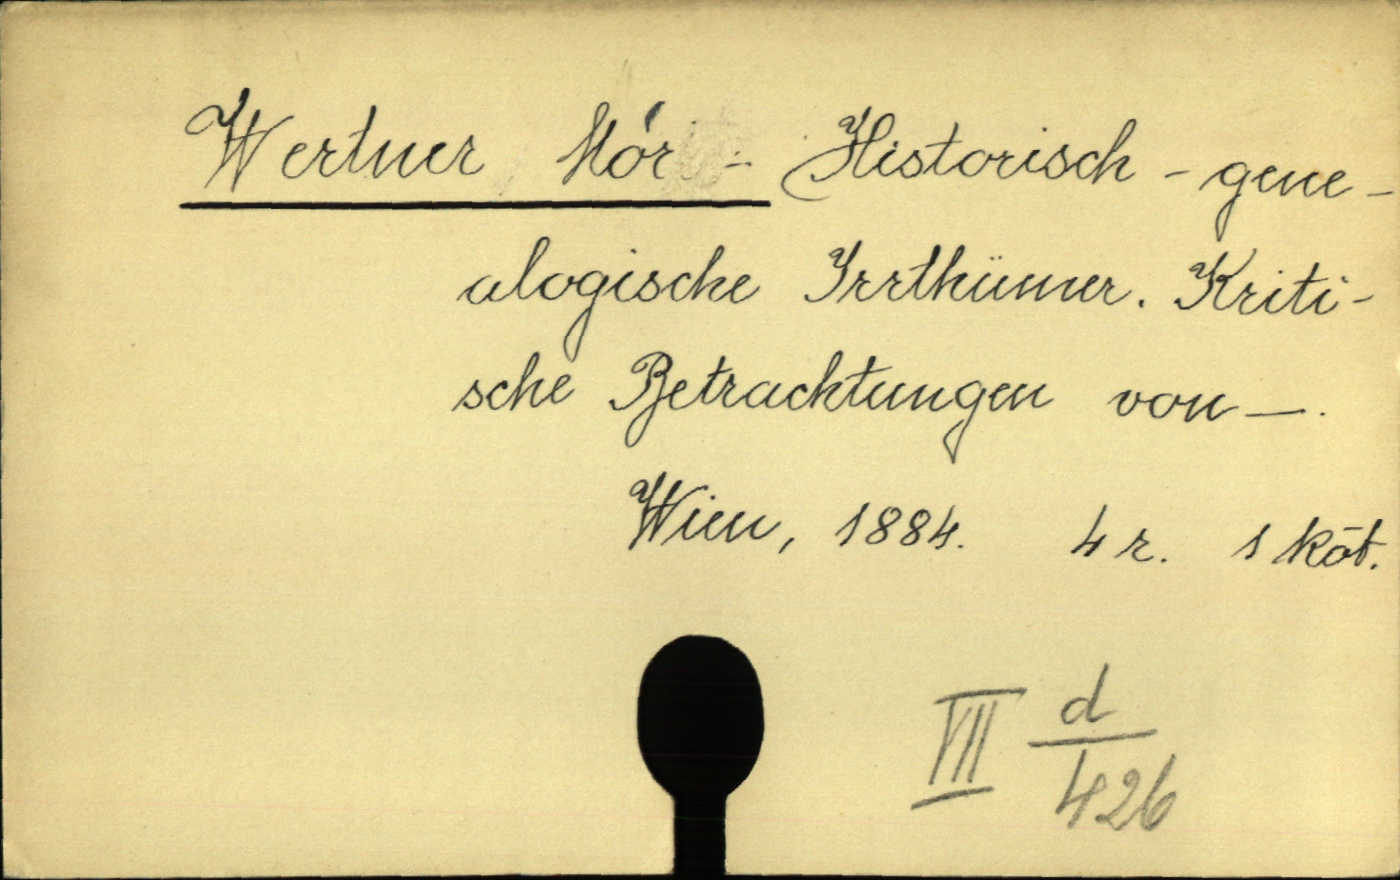 Wertner Mór - Historisch - gene-
alogische Irrthümer. Kriti-
sche Betrachtungen von —.
Wien, 1884. 4 r. 1 köt.
VII d/426